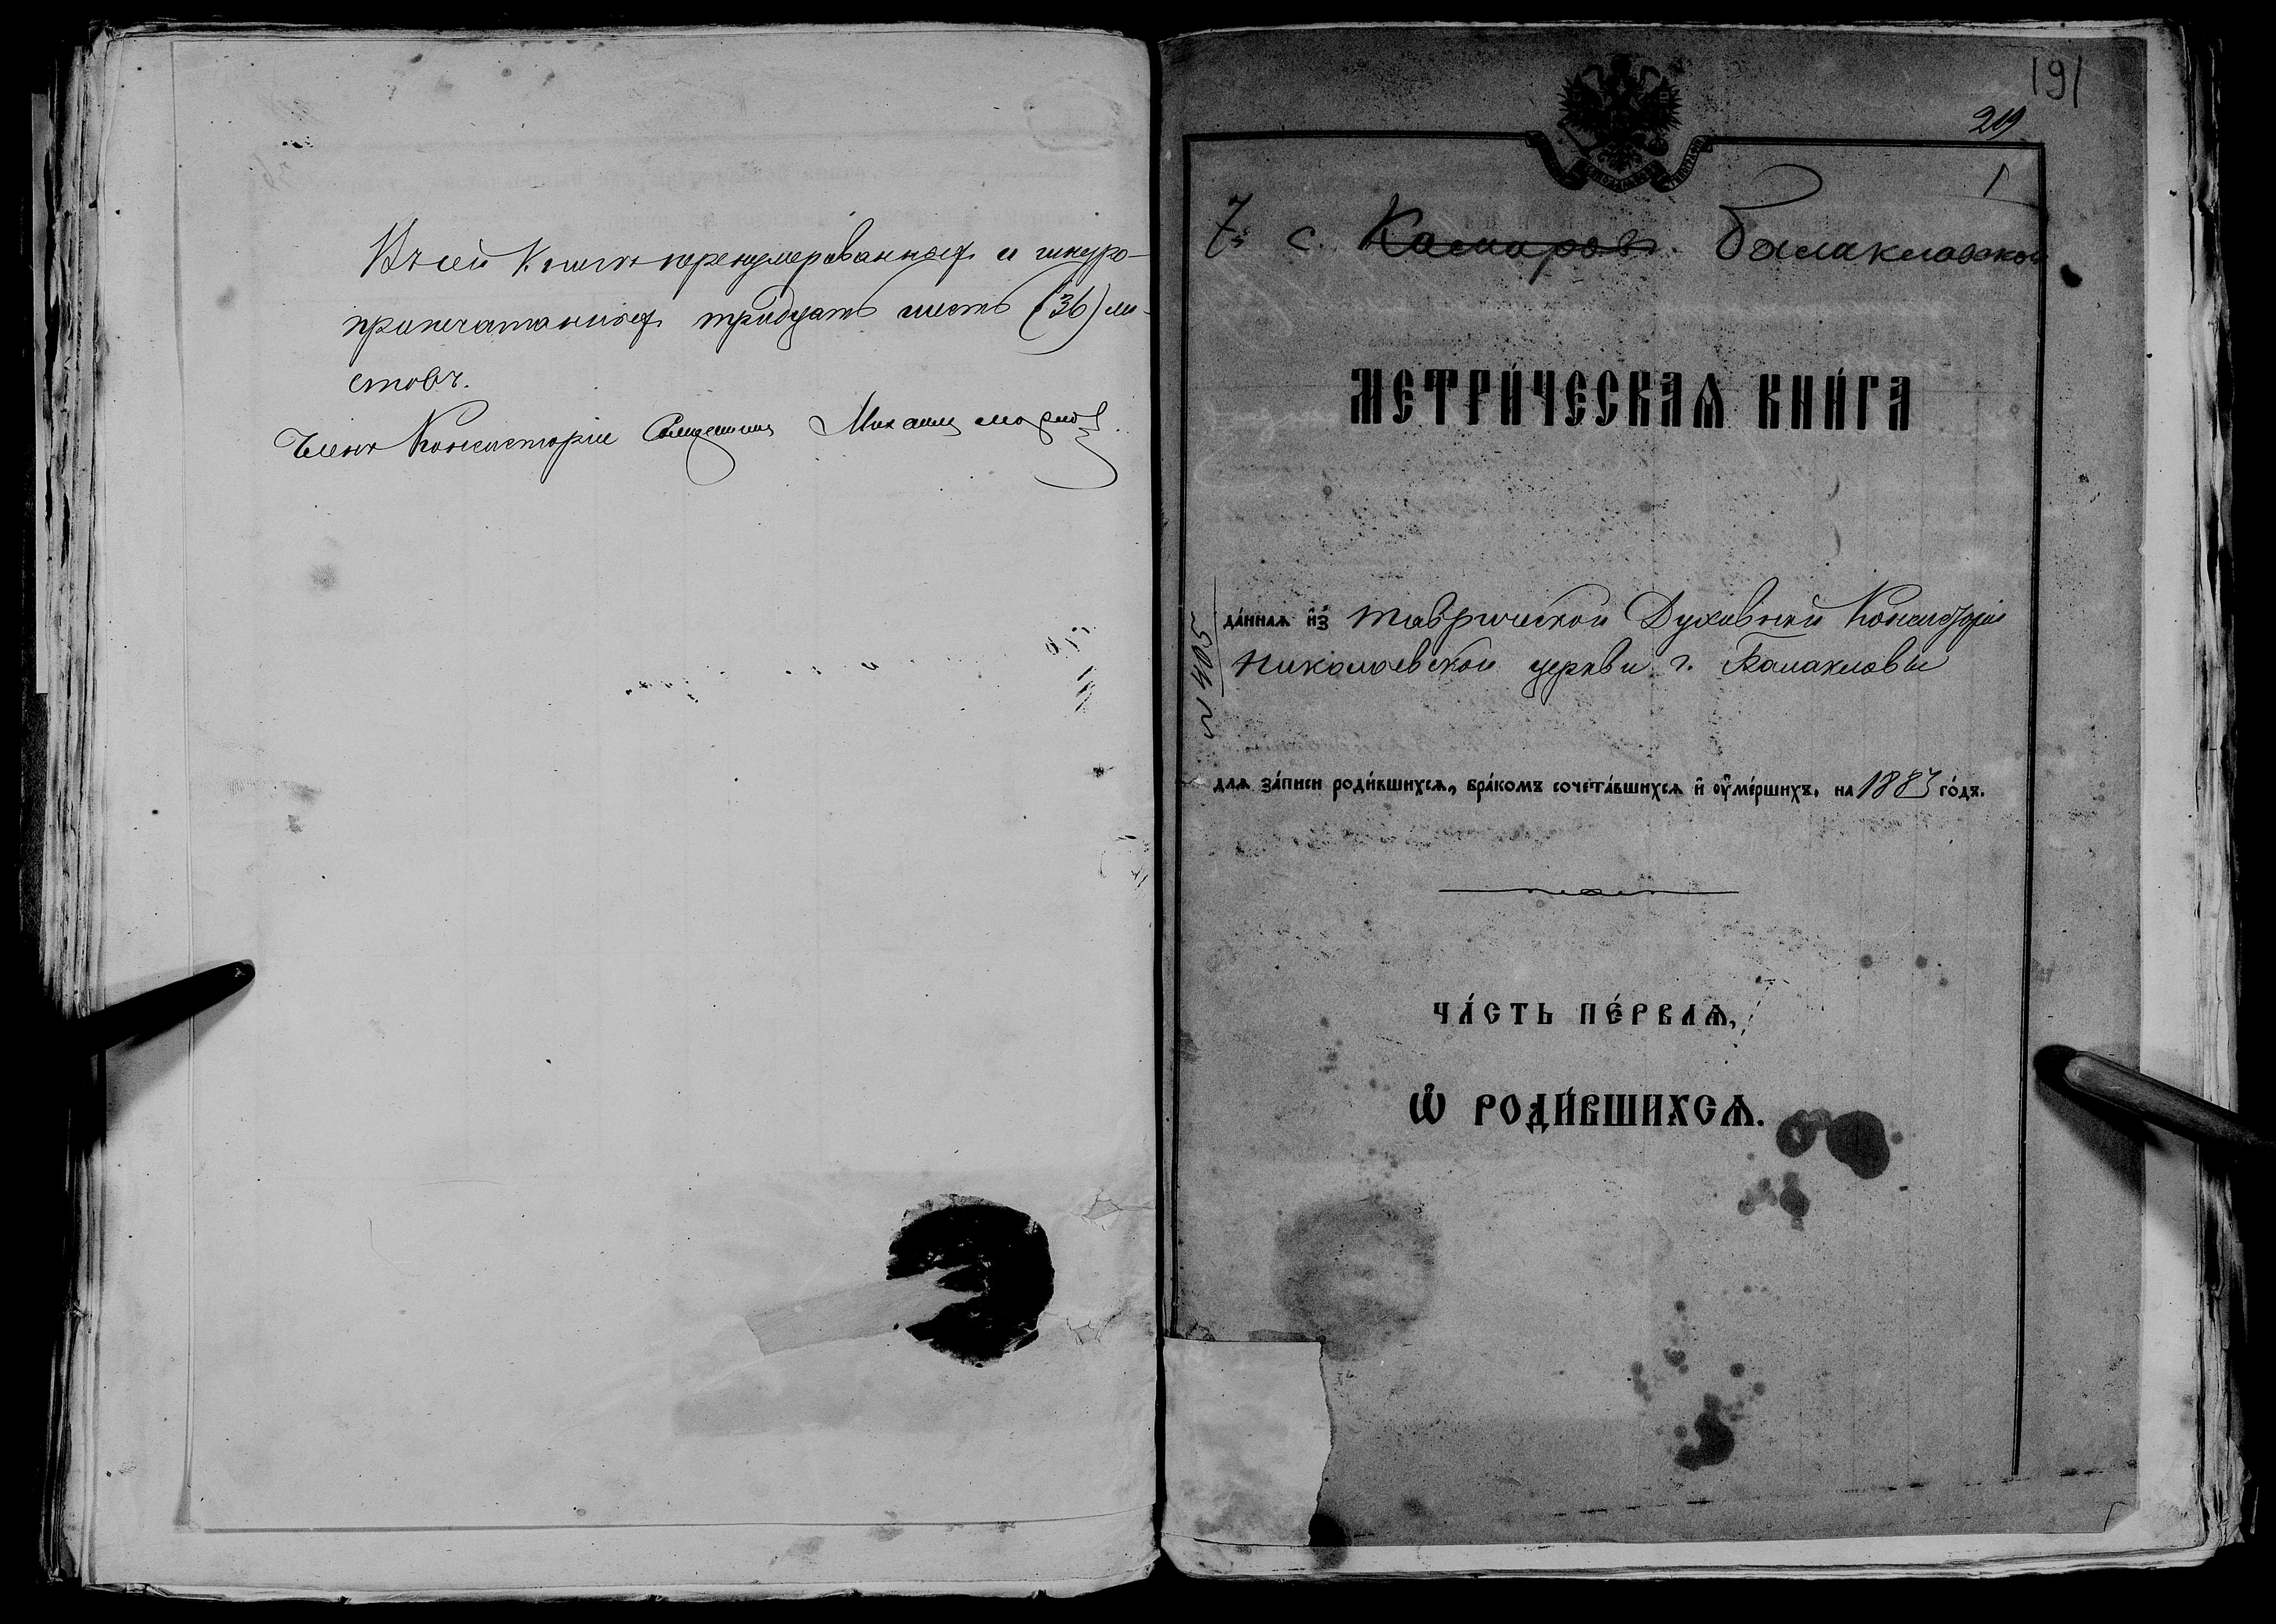 Въ сей книгѣ пренумерованныхъ и шнуро-
припечатанныхъ тридцать шесть (36) ли-
стовъ.
Членъ Консисторіи Священникъ Михаилъ
191
219
1
7. с. Камаровъ. Балаклавской
МЕТРИ́ЧЕСКАѦ КНИ́ГА
да́ннаѧ и҆з̾ Таврической Духовной Консисторіи
Николаевской церкви г. Балаклавы
для за́писи роди́вшихсѧ, бра́комъ сочета́вшихсѧ и҆ ᲂу҆ме́ршихъ, на 1883 го́дъ.
ЧА́СТЬ ПЕ́РВАѦ,
Ѡ҆ РОДИ́ВШИХСѦ.